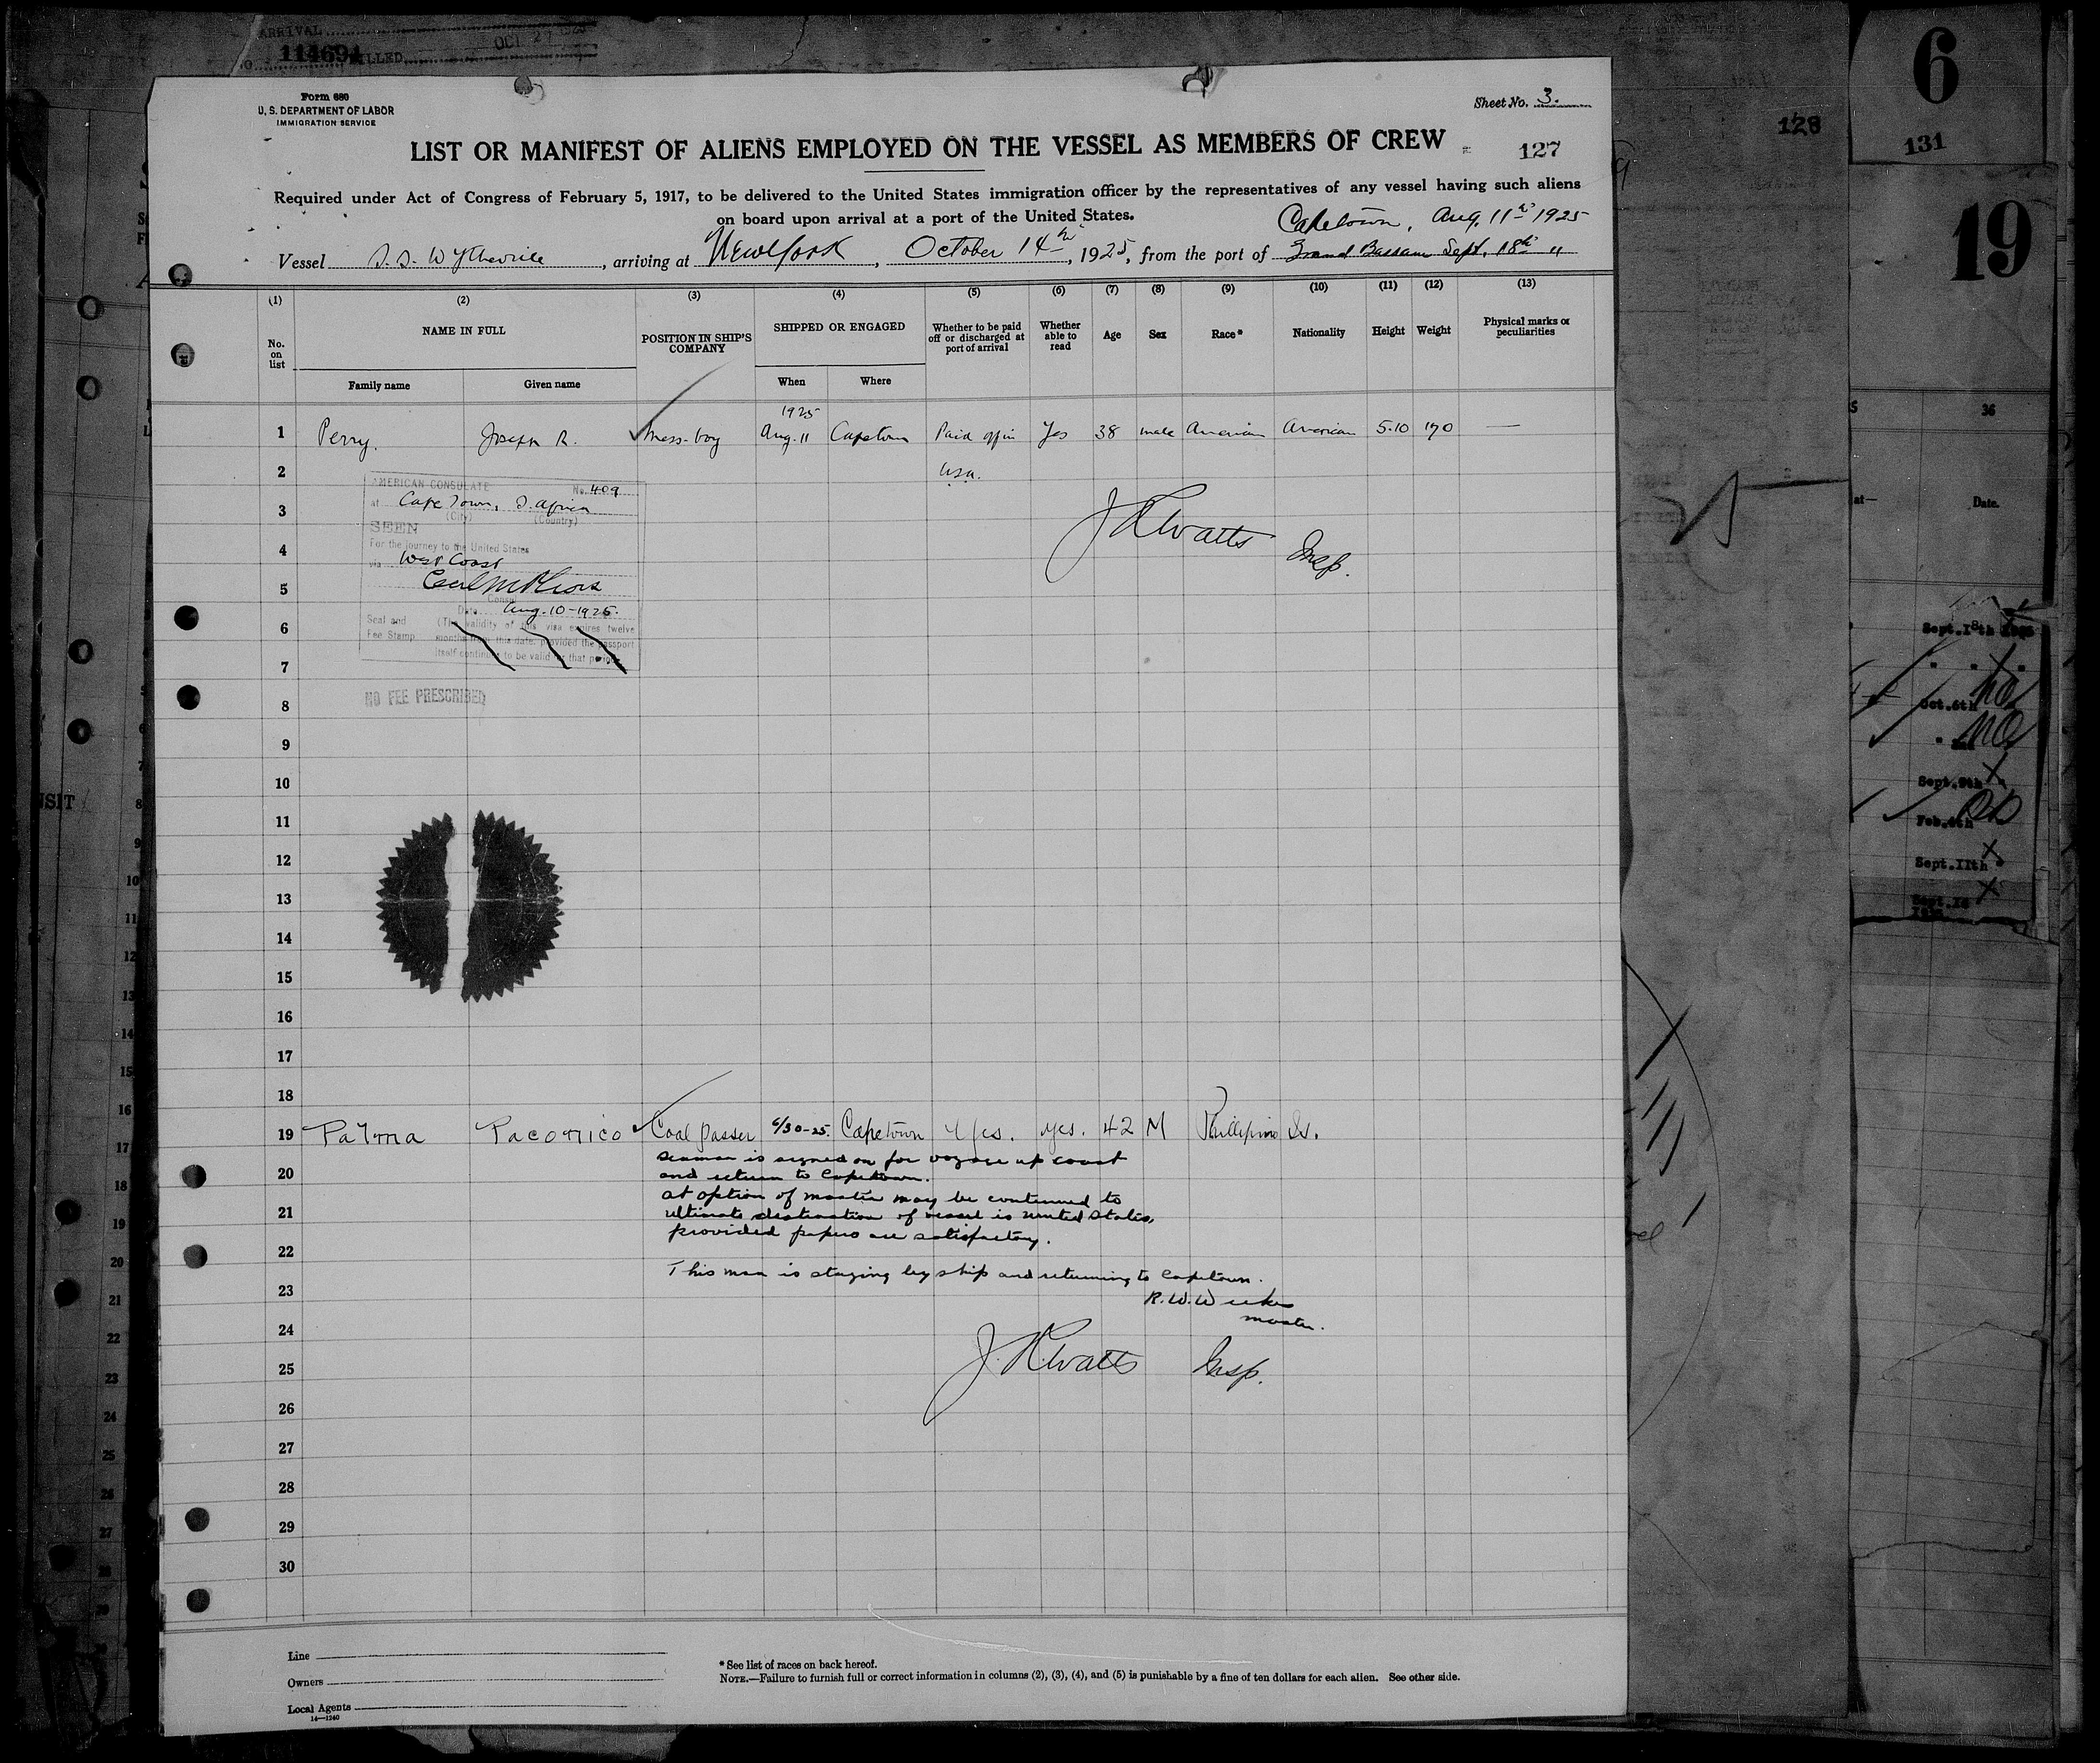 ARRIVAL
114694
OCT 27
Form 680
U. S. DEPARTMENT OF LABOR
IMMIGRATION SERVICE
Sheet No. 3.
LIST OR MANIFEST OF ALIENS EMPLOYED ON THE VESSEL AS MEMBERS OF CREW
127
Required under Act of Congress of February 5, 1917, to be delivered to the United States immigration officer by the representatives of any vessel having such aliens
on board upon arrival at a port of the United States.
Capetown, Aug. 11th 1925
Vessel S. S. Wytheville, arriving at New York, October 14th, 1925, from the port of Grand Bassam Sept. 18th "
(1) (2) (3) (4) (5) (6) (7) (8) (9) (10) (11) (12) (13)
No. on list
NAME IN FULL
Family name
Given name
POSITION IN SHIP'S COMPANY
SHIPPED OR ENGAGED
When
Where
Whether to be paid off or discharged at port of arrival
Whether able to read
Age
Sex
Race*
Nationality
Height
Weight
Physical marks or peculiarities
1925
1 Perry. Joseph R. Mess-boy Aug. 11 Capetown Paid off in Yes 38 male American American 5.10 170 —
2 USA.
AMERICAN CONSULATE No. 409
at Cape Town, S. Africa
(City) (Country)
3
SEEN
J R Watts Insp.
For the journey to the United States
4
via West Coast
5
Consul
Date Aug. 10-1925.
6
Seal and Fee Stamp
(The validity of this visa expires twelve
months from this date, provided the passport
itself continues to be valid for that period
7
NO FEE PRESCRIBED
8
9
10
11
12
13
14
15
16
17
18
19 Palma Pacomico Coal passer 6/30-25. Capetown Yes. yes. 42 M Phillipine Is.
Seaman is signed on for voyage up coast
20 and return to Capetown.
at option of master may be continued to
21 ultimate destination of vessel is United States,
provided papers are satisfactory.
22
This man is staying by ship and returning to Capetown.
23
R. W. Weeks
master.
24
25 J. R. Watts Insp.
26
27
28
29
30
Line
Owners
Local Agents
14—1240
* See list of races on back hereof.
NOTE.—Failure to furnish full or correct information in columns (2), (3), (4), and (5) is punishable by a fine of ten dollars for each alien. See other side.
128
6
131
19
36
Date.
Sept.18th
Oct.6th
no
no
Sept.9th
Feb.4th
Sept.11th